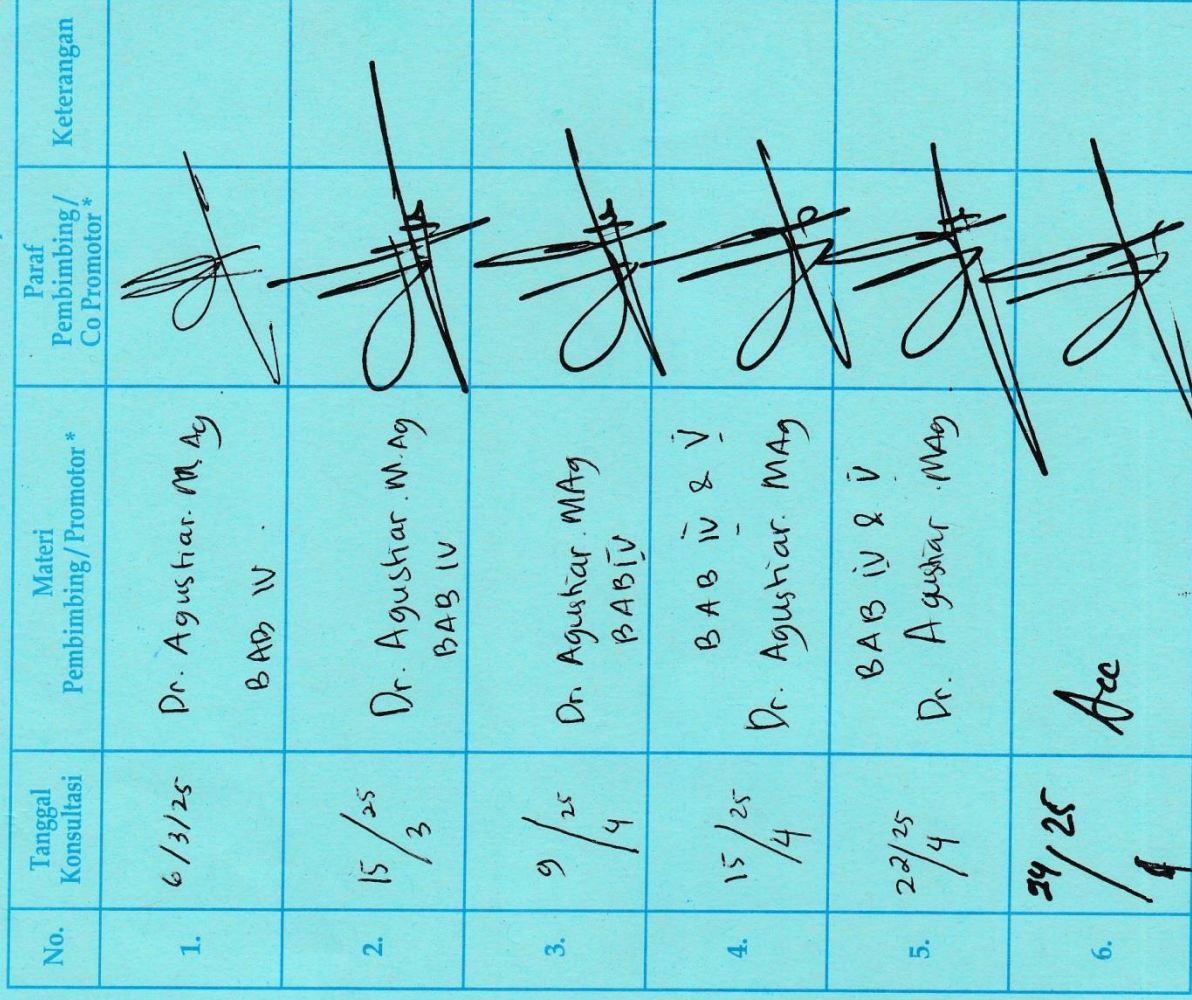 No.
Tanggal
Konsultasi
Materi
Pebimbing / Promotor *
Paraf
Pembimbing /
Co Promotor *
Keterangan
1.
6/3/25
Dr. Agustiar. M.Ag
BAB IV.
2.
15/25
3
Dr. Agustiar. M.Ag
BAB IV
3.
9/25
4
Dr. Agustiar. MAg
BAB IV
4.
15/25
4
BAB IV & V
Dr. Agustiar. MAg
5.
22/25
4
BAB IV & V
Dr. Agustiar. MAg
6.
24/25
4
Acc